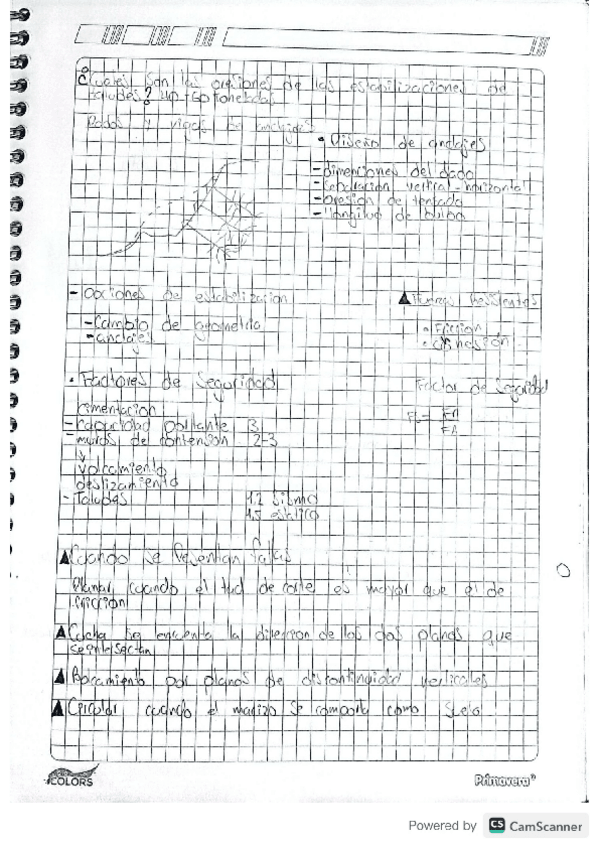 ¿Cuales son las presiones de las estabilizaciones de
taludes? 40-150 toneladas
Dados y vigas de anclajes
• Diseño de anclajes
- dimenciones del dado
- separacion vertical-horizontal
- presion de tensado
- longitud de bulbo
- opciones de estabilizacion
- Cambio de geometria
- anclajes
▲ Fuerzas Resistentes
• Friccion
• cohesion
• Factores de Seguridad
Factor de Seguridad
FR
FA
cimentacion
- Capacidad portante 3
- muros de contension 2-3
volcamiento
deslizamiento
- Taludes 1,2 sismo
1,5 estatico
▲ Cuando se Presentan fallas
Planar cuando el de corte es mayor que el de
friccion
▲ Cuña se encuentra la direccion de los dos planos que
se intersectan
▲ Volcamiento por planos de discontinuidad verticales
▲ Circular cuando el macizo se comporta como suelo
COLORS
Primavera®
Powered by CS CamScanner